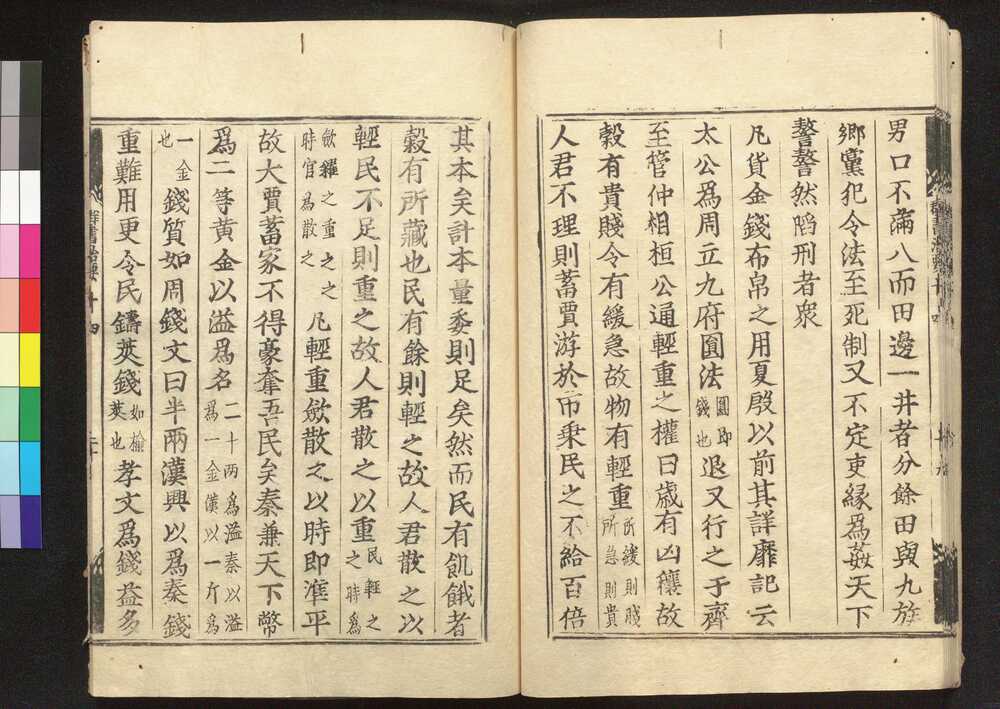 男口不滿八而田邊一井者分餘田與九族
鄉黨犯令法至死制又不定吏緣爲姦天下
謷謷然陷刑者衆
凡貨金錢布帛之用夏殷以前其詳靡記云
太公爲周立九府圓法圓即錢也退又行之于齊
至管仲相桓公通輕重之權曰歲有凶穰故
穀有貴賤令有緩急故物有輕重所緩則賤所急則貴
人君不理則蓄賈游於市乗民之不給百倍
其本矣計本量委則足矣然而民有飢餓者
穀有所藏也民有餘則輕之故人君散之以
輕民不足則重之故人君散之以重民輕之之時爲
斂糴之重之之時官爲散之凡輕重斂散之以時即準平
故大賈蓄家不得豪奪吾民矣秦兼天下幣
爲二等黃金以溢爲名二十兩爲溢秦以溢爲一金漢以一斤爲
一金也錢質如周錢文曰半兩漢興以爲秦錢
重難用更令民鑄莢錢如榆莢也孝文爲錢益多
群書治要十四